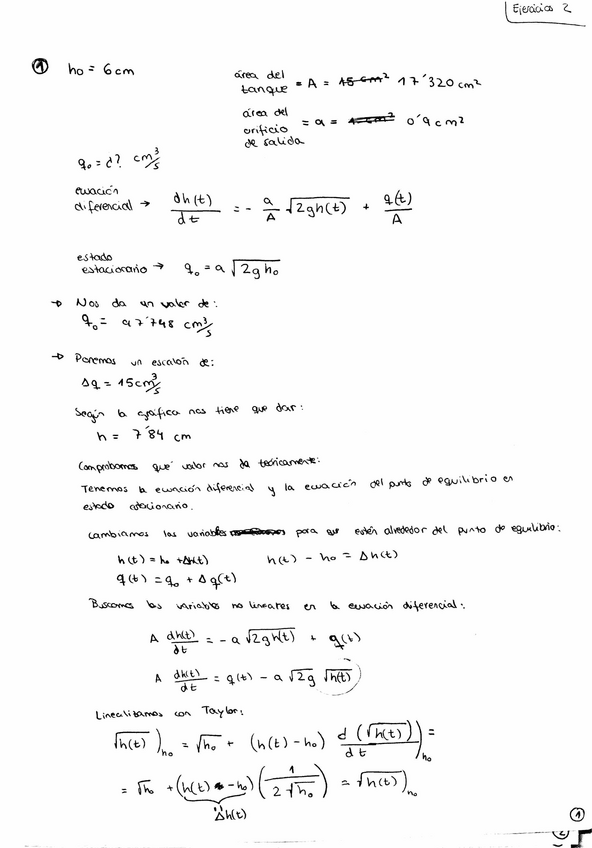 Ejercicio 2
① h₀ = 6 cm
área del tanque = A = 15 cm² 17'320 cm²
área del orificio de salida = a = 0'9 cm²
q₀ = ¿? cm³/s
ecuación diferencial → dh(t)/dt = - a/A √2gh(t) + q(t)/A
estado estacionario → q₀ = a √2gh₀
→ Nos da un valor de:
q₀ = 97'748 cm³/s
→ Ponemos un escalón de:
Δq = 15 cm³/s
Según la gráfica nos tiene que dar:
h = 7'84 cm
Comprobamos qué valor nos da teóricamente:
Tenemos la ecuación diferencial y la ecuación del punto de equilibrio en
estado estacionario.
Cambiamos las variables para que estén alrededor del punto de equilibrio:
h(t) = h₀ + Δh(t) h(t) - h₀ = Δh(t)
q(t) = q₀ + Δq(t)
Buscamos las variables no lineares en la ecuación diferencial:
A dh(t)/dt = - a √2gh(t) + q(t)
A dh(t)/dt = q(t) - a √2g √h(t)
Linealizamos con Taylor:
√h(t))h₀ = √h₀ + (h(t) - h₀) d(√h(t))/dt)h₀ =
= √h₀ + (h(t) - h₀) (1/2√h₀) = √h(t))h₀
Δh(t)
①
②